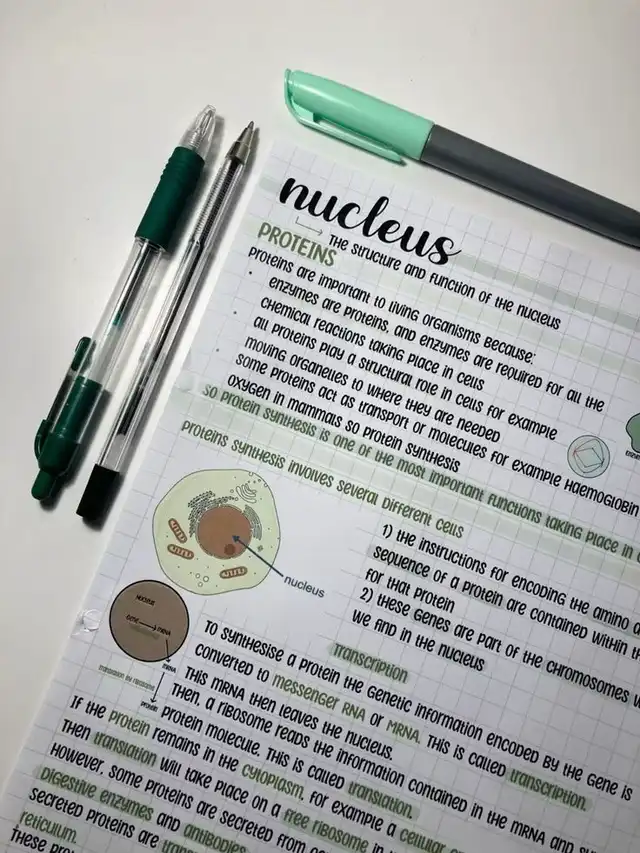 nucleus
The structure and function of the nucleus
PROTEINS
Proteins are important to living organisms because:
enzymes are proteins, and enzymes are required for all the
chemical reactions taking place in cells
all proteins play a structural role in cells for example
moving organelles to where they are needed
some proteins act as transport or molecules for example Haemoglobin
oxygen in mammals so protein synthesis
so protein synthesis is one of the most important functions taking place in
proteins synthesis involves several different cells
nucleus
1) the instructions for encoding the amino a
sequence of a protein are contained within th
for that protein
2) these genes are part of the chromosomes w
we find in the nucleus
NUCLEUS
GENE mRNA
mRNA
translation by ribosome
protein
Transcription
To synthesise a protein the genetic information encoded by the gene is
converted to messenger RNA or MRNA. This is called transcription.
This mRNA then leaves the nucleus.
Then, a ribosome reads the information contained in the mRNA and
protein molecule. This is called translation.
If the protein remains in the cytoplasm, for example a cellular
Then translation will take place on a free ribosome in
However, some proteins are secreted from
Digestive enzymes and antibodies
secreted proteins are
reticulum.
These